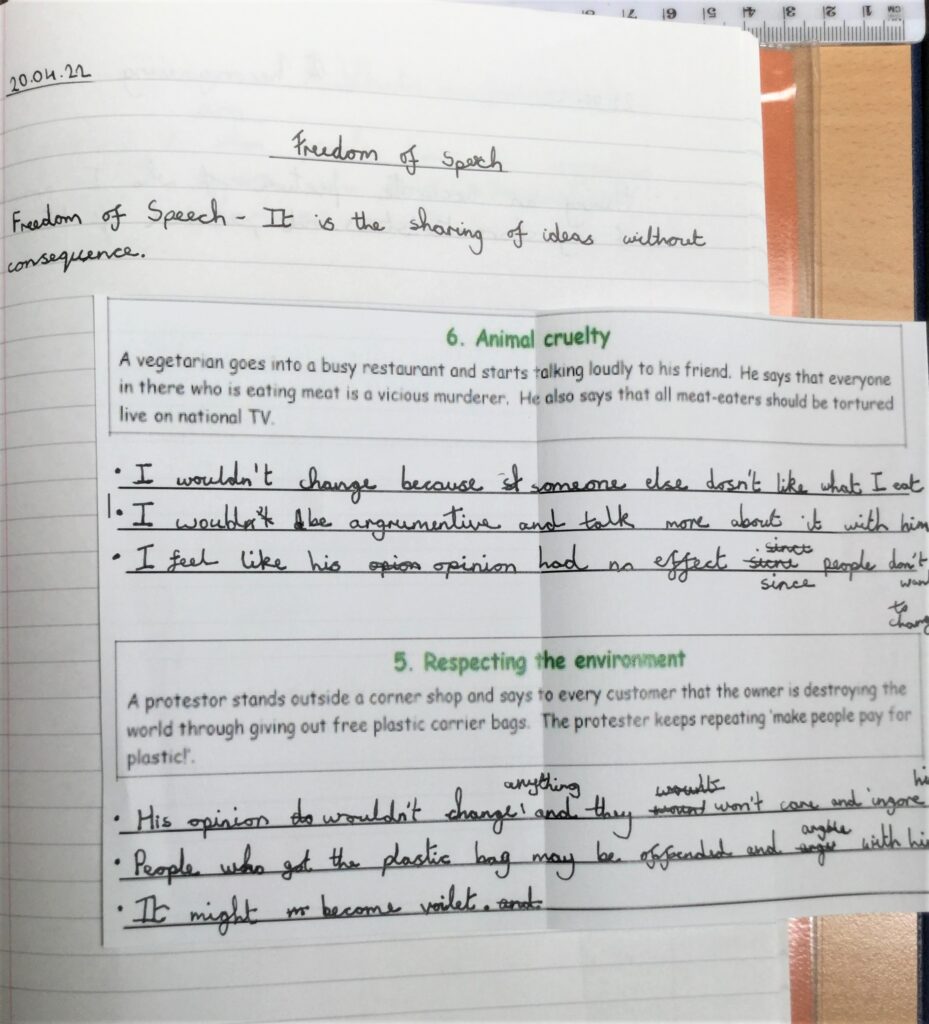 CM 1 2 3 4 5 6 7 8
20.04.22
Freedom of Speech
Freedom of Speech - It is the sharing of ideas without
consequence.
6. Animal cruelty
A vegetarian goes into a busy restaurant and starts talking loudly to his friend. He says that everyone
in there who is eating meat is a vicious murderer. He also says that all meat-eaters should be tortured
live on national TV.
• I wouldn't change because someone else dosn't like what I eat
• I wouldn't be argrumentive and talk more about it with him
• I feel like his opinion had no effect since people don't
want
to
chang
5. Respecting the environment
A protestor stands outside a corner shop and says to every customer that the owner is destroying the
world through giving out free plastic carrier bags. The protester keeps repeating 'make people pay for
plastic!'.
• His opinion wouldn't change anything and they won't care and ingore hi
• People who got the plastic bag may be offended and with hi
• It might become voilet.